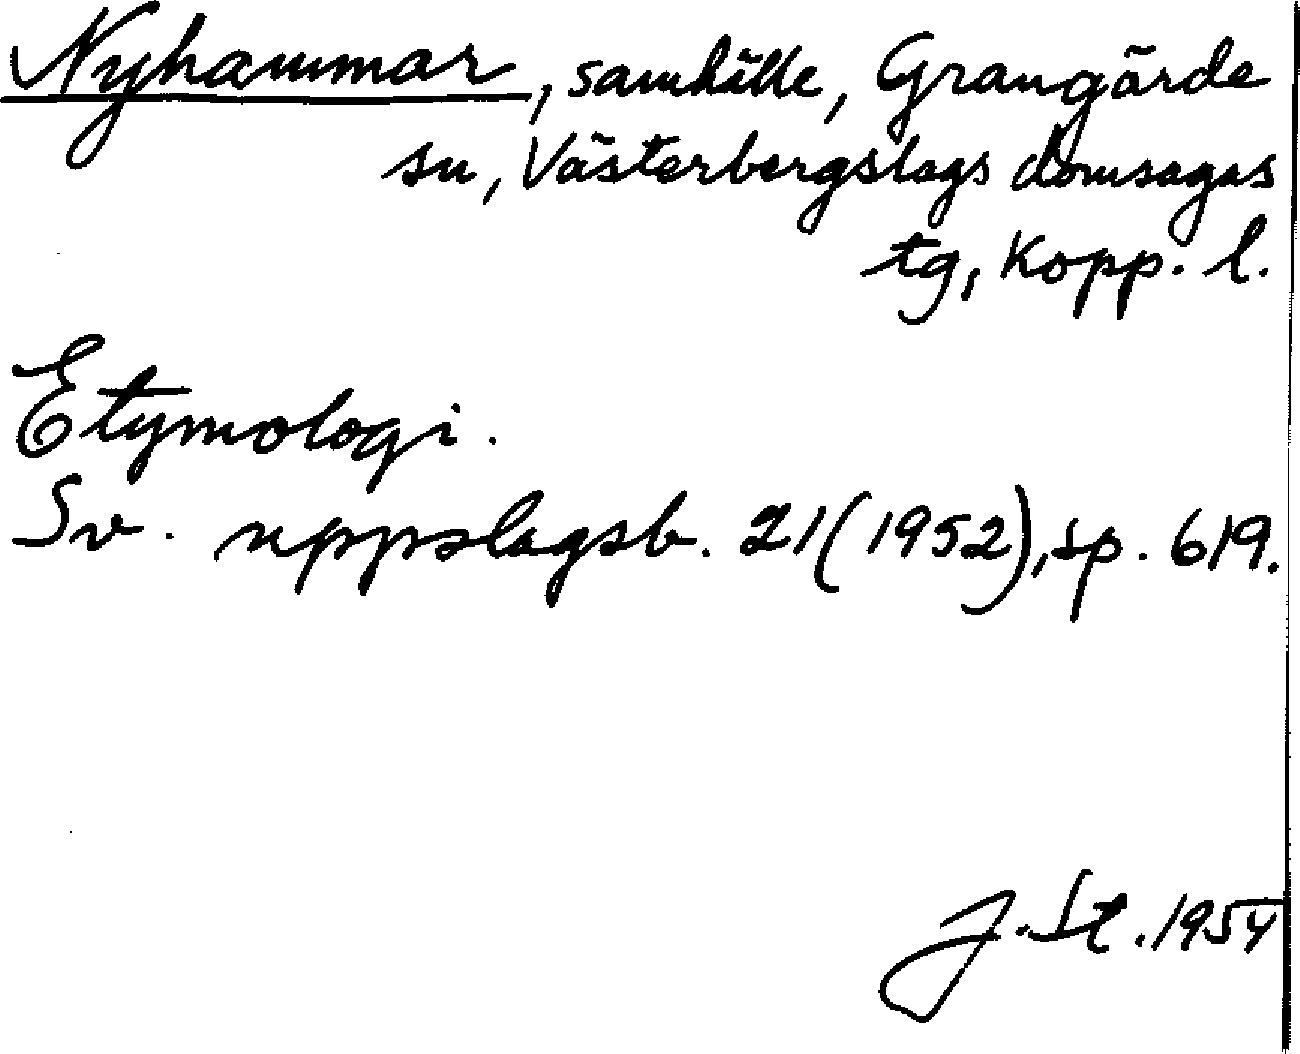 Nyhammar, samhälle, Grangärde
sn, Västerbergslags domsagas
tg, Kopp. l.
Etymologi.
Sv. uppslagsb. 21(1952), sp. 619.
J. St. 1954